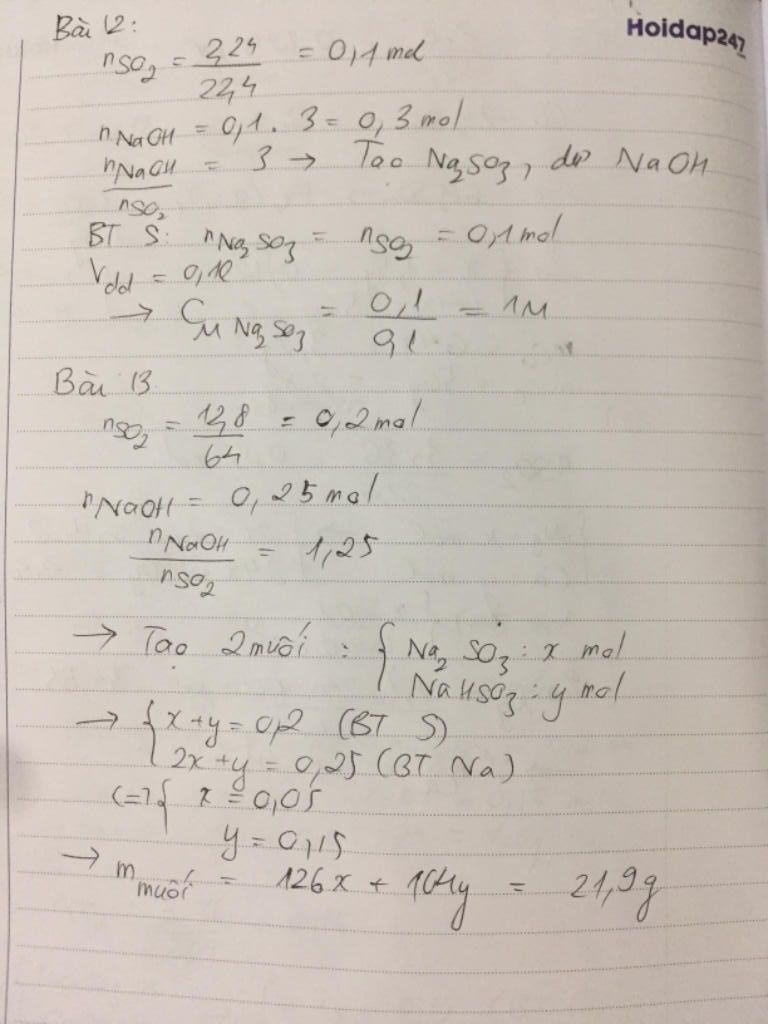 Hoidap247
Bài 12:
nSO2 = 2,24/22,4 = 0,1 mol
nNaOH = 0,1 . 3 = 0,3 mol
nNaOH/nSO2 = 3 → Tạo Na2SO3, dư NaOH
BT S: nNa2SO3 = nSO2 = 0,1 mol
Vdd = 0,1l
→ CM Na2SO3 = 0,1/0,1 = 1M
Bài 13
nSO2 = 12,8/64 = 0,2 mol
nNaOH = 0,25 mol
nNaOH/nSO2 = 1,25
→ Tạo 2 muối : { Na2SO3 : x mol
NaHSO3 : y mol
→ { x + y = 0,2 (BT S)
2x + y = 0,25 (BT Na)
(=) { x = 0,05
y = 0,15
→ mmuối = 126x + 104y = 21,9g